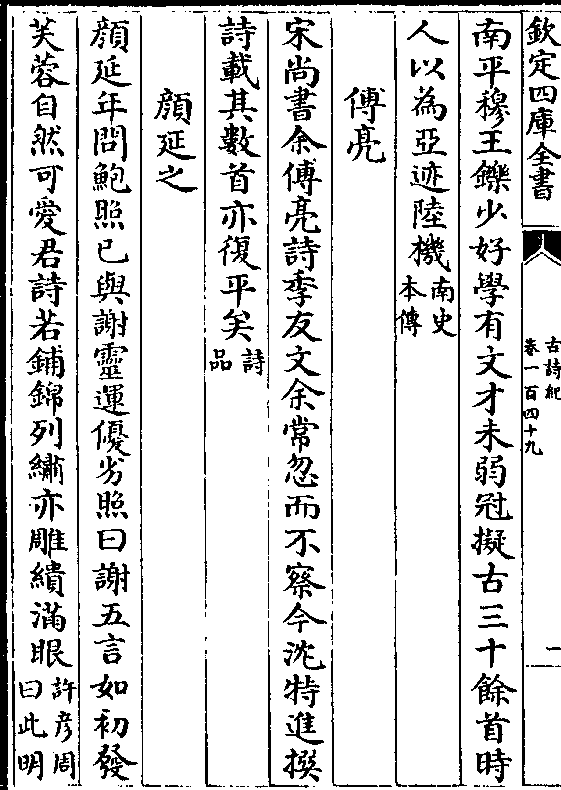 欽定四庫全書
古詩紀
卷一百四十九
一
南平穆王鑠少好學有文才未弱冠擬古三十餘首時
人以為亞迹陸機南史
本傳
傅亮
宋尚書余傅亮詩季友文余常忽而不察今沈特進撰
詩載其數首亦復平矣詩
品
顔延之
顔延年問鮑照已與謝靈運優劣照曰謝五言如初發
芙蓉自然可愛君詩若鋪錦列繡亦雕繢滿眼許彦周
曰此明